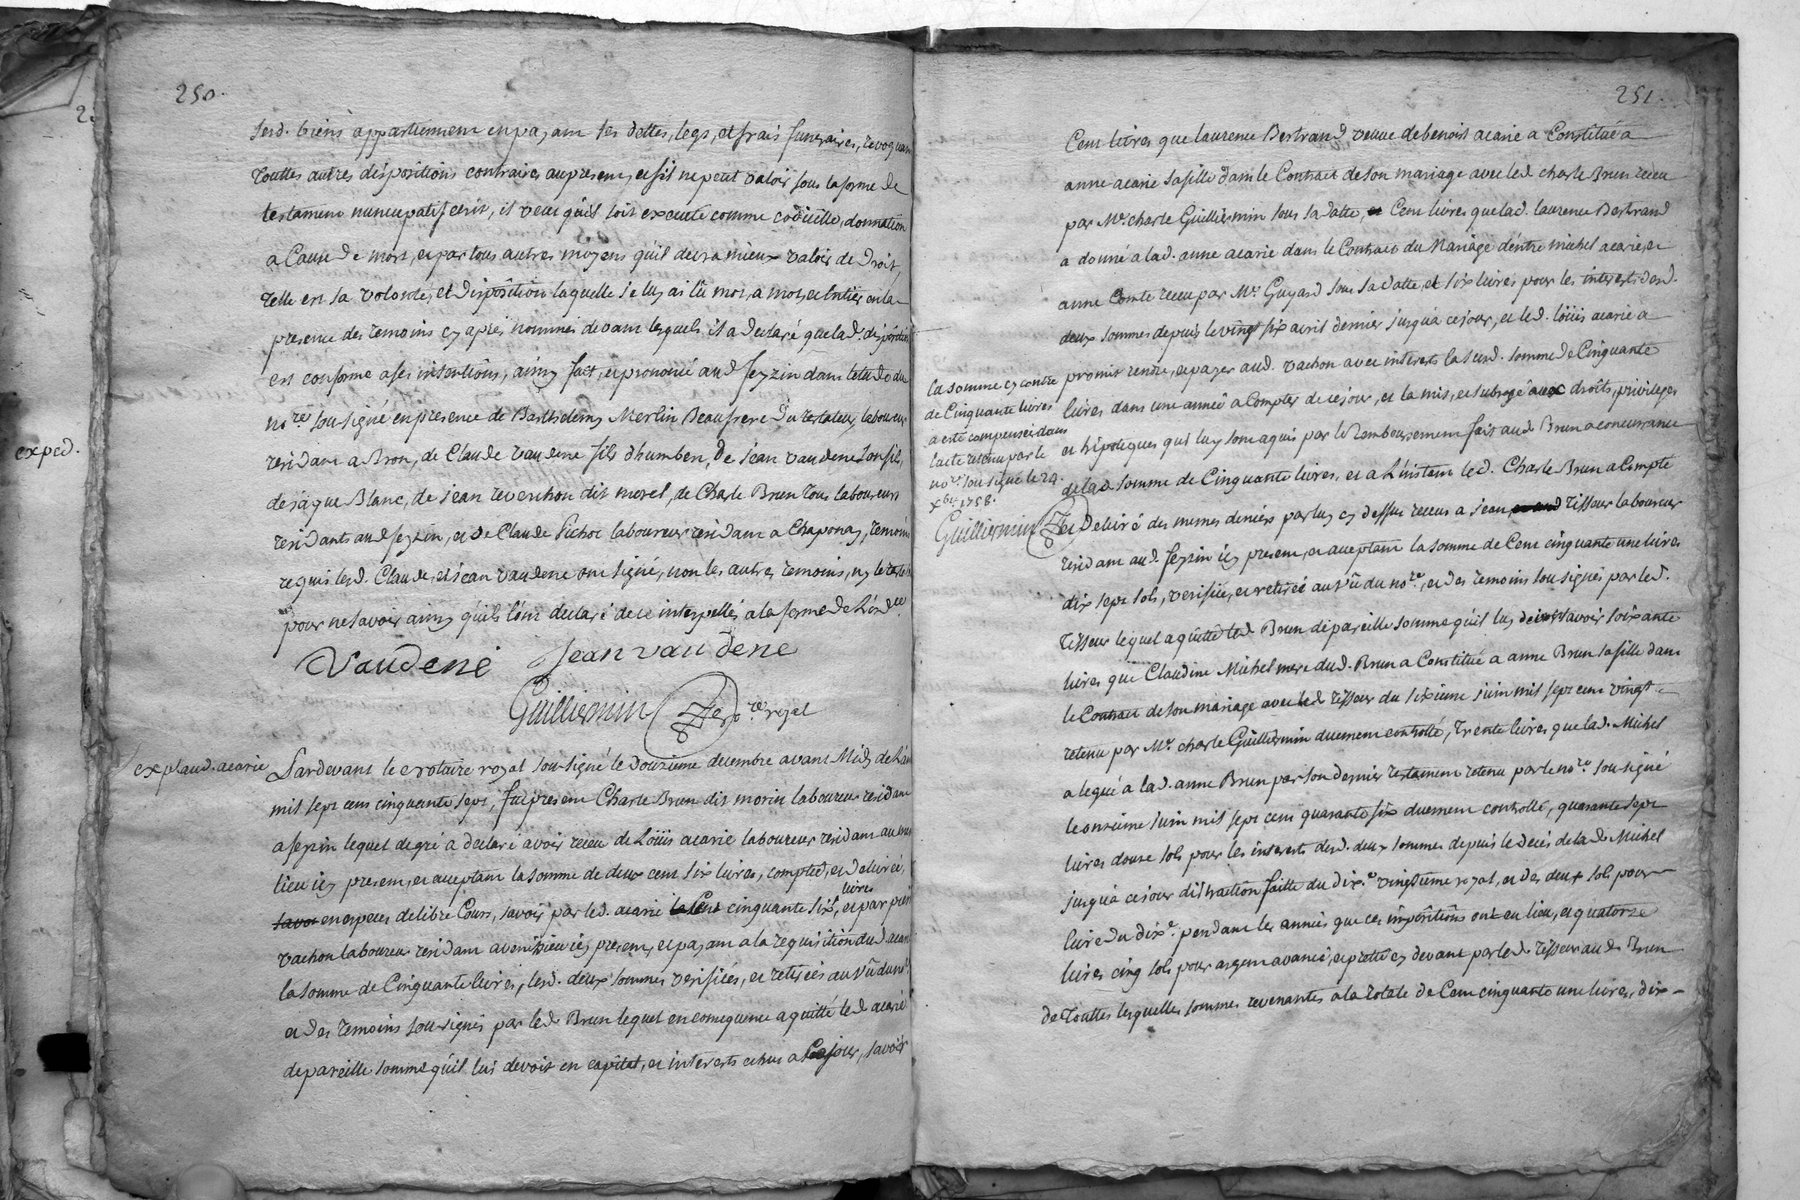 250.
serd. biens appartiennent en payant ses dettes, legs, et frais funeraires, revoquant
touttes autres dispositions contraires au present, et s'il ne peut valoir sous la forme de
testament nuncupatif ecrit, il veut qu'il soit executé comme codicille, donnation
a Cause de mort, et par tous autres moyens qu'il devra mieux valoir de droit,
telle est sa volonté, et disposition laquelle je luy ai lû mot, a mot, et entier en la
presence des temoins cy apres nommés devant lesquels il a declaré que lad. disposition
est conforme a ses intentions, ainsy fait, et prononcé aud feyzin dans l'etude du
no.re sousigné en presence de Barthelemy Merlin Beaufrere du testateur laboureur
residant a Bron, de Claude vaudene fils d'humbert, de jean vaudene son fils,
de jaque Blanc, de jean revenchon dit morel, de Charle Brun tous laboureurs
residants aud feyzin, et de Claude Pichot laboureur residant a Chaponay, temoins
requis lesd. Claude, et jean vaudene ont signé, non les autres temoins, ny le testateur
pour ne savoir ainsy qu'ils l'ont declaré de ce interpellés a la forme de L'ord.ce
Vaudené Jean vaudene
Guilliermin No.re royal
exp. aud. acarie
Pardevant le Notaire royal sousigné le douzieme decembre avant Midy de L'an
mil sept cens cinquante sept, fut present Charle Brun dit morin laboureur residant
a feyzin lequel de gré a declaré avoir receu de Loüis acarie laboureur residant au meme
lieu icy present, et acceptant la somme de deux cent six livres, compted, et delivrée,
livres
savoir en especes de libre Cours, savoir par led. acarie la Cent cinquante six, et par pierre
vachon laboureur residant a venissieu icy present, et payant a la requisition dud. acarie
la somme de Cinquante livres, lesd. deux sommes verifiées, et retirées au vû du no.re
et des temoins sousignés par led Brun lequel en consequence a quitté led acarie
de pareille somme qu'il lui devoit en capital, et interests echus a Ce jour, savoir
exped.
251.
Cent livres que laurence Bertrand veuve de benoit acarie a Constitué a
anne acarie sa fille dans le Contract de son mariage avec led. charle Brun receu
par M.e charle Guilliermin sous sa datte, et Cent livres que lad. laurence Bertrand
a donné a lad. anne acarie dans le Contract du Mariage d'entre michel acarie, et
anne Comte receu par M.e Guyard sous sa datte, et six livres pour les interests desd.
deux sommes depuis le vingt six avril dernier jusqu'a ce jour, et led. loüis acarie a
promit rendre, et payer aud. vachon avec interests la susd. somme de Cinquante
livres dans une année a Compter de ce jour, et la mis, et subrogé aux droits, privileges
et hipoteques qui luy sont aquis par le Remboursement fait aud Brun a concurrance
de lad. somme de Cinquante livres, et a L'instant led. Charle Brun a Compté
et delivré des memes deniers par luy cy dessus receus a jean tisseur laboureur
residant aud. feyzin icy present, et acceptant la somme de Cent cinquante une livres
dix sept sols, verifiée, et retirée au vû du no.re, et des temoins sousignés par led.
tisseur lequel a quitté led Brun de pareille somme qu'il luy devoit savoir soixante
livres que Claudine Michel mere dud. Brun a Constitué a anne Brun sa fille dans
le Contract de son mariage avec led tisseur du sixieme juin mil sept cent vingt
retenu par M.e charle Guilliermin duement controllé, Trente livres que lad. Michel
a legué a lad. anne Brun par son dernier testament retenu par le no.re sousigné
le onzieme juin mil sept cent quarante six duement controllé, quarante sept
livres douze sols pour les interests desd. deux sommes depuis le decés de lad. Michel
jusqu'a ce jour distraction faitte du dix.e vingtieme royal, et des deux sols pour
livre du dix.e pendant les années que ces impositions ont eu lieu, et quatorze
livres cinq sols pour argent avancé, et preté cy devant par led. tisseur aud. Brun
de touttes lesquelles sommes revenantes a la totale de Cent cinquante une livres, dix-
la somme cy contre
de Cinquante livres
a esté compensée dans
l'acte retenu par le
no.re sousigné le 29.
xbre 1758.
Guilliermin